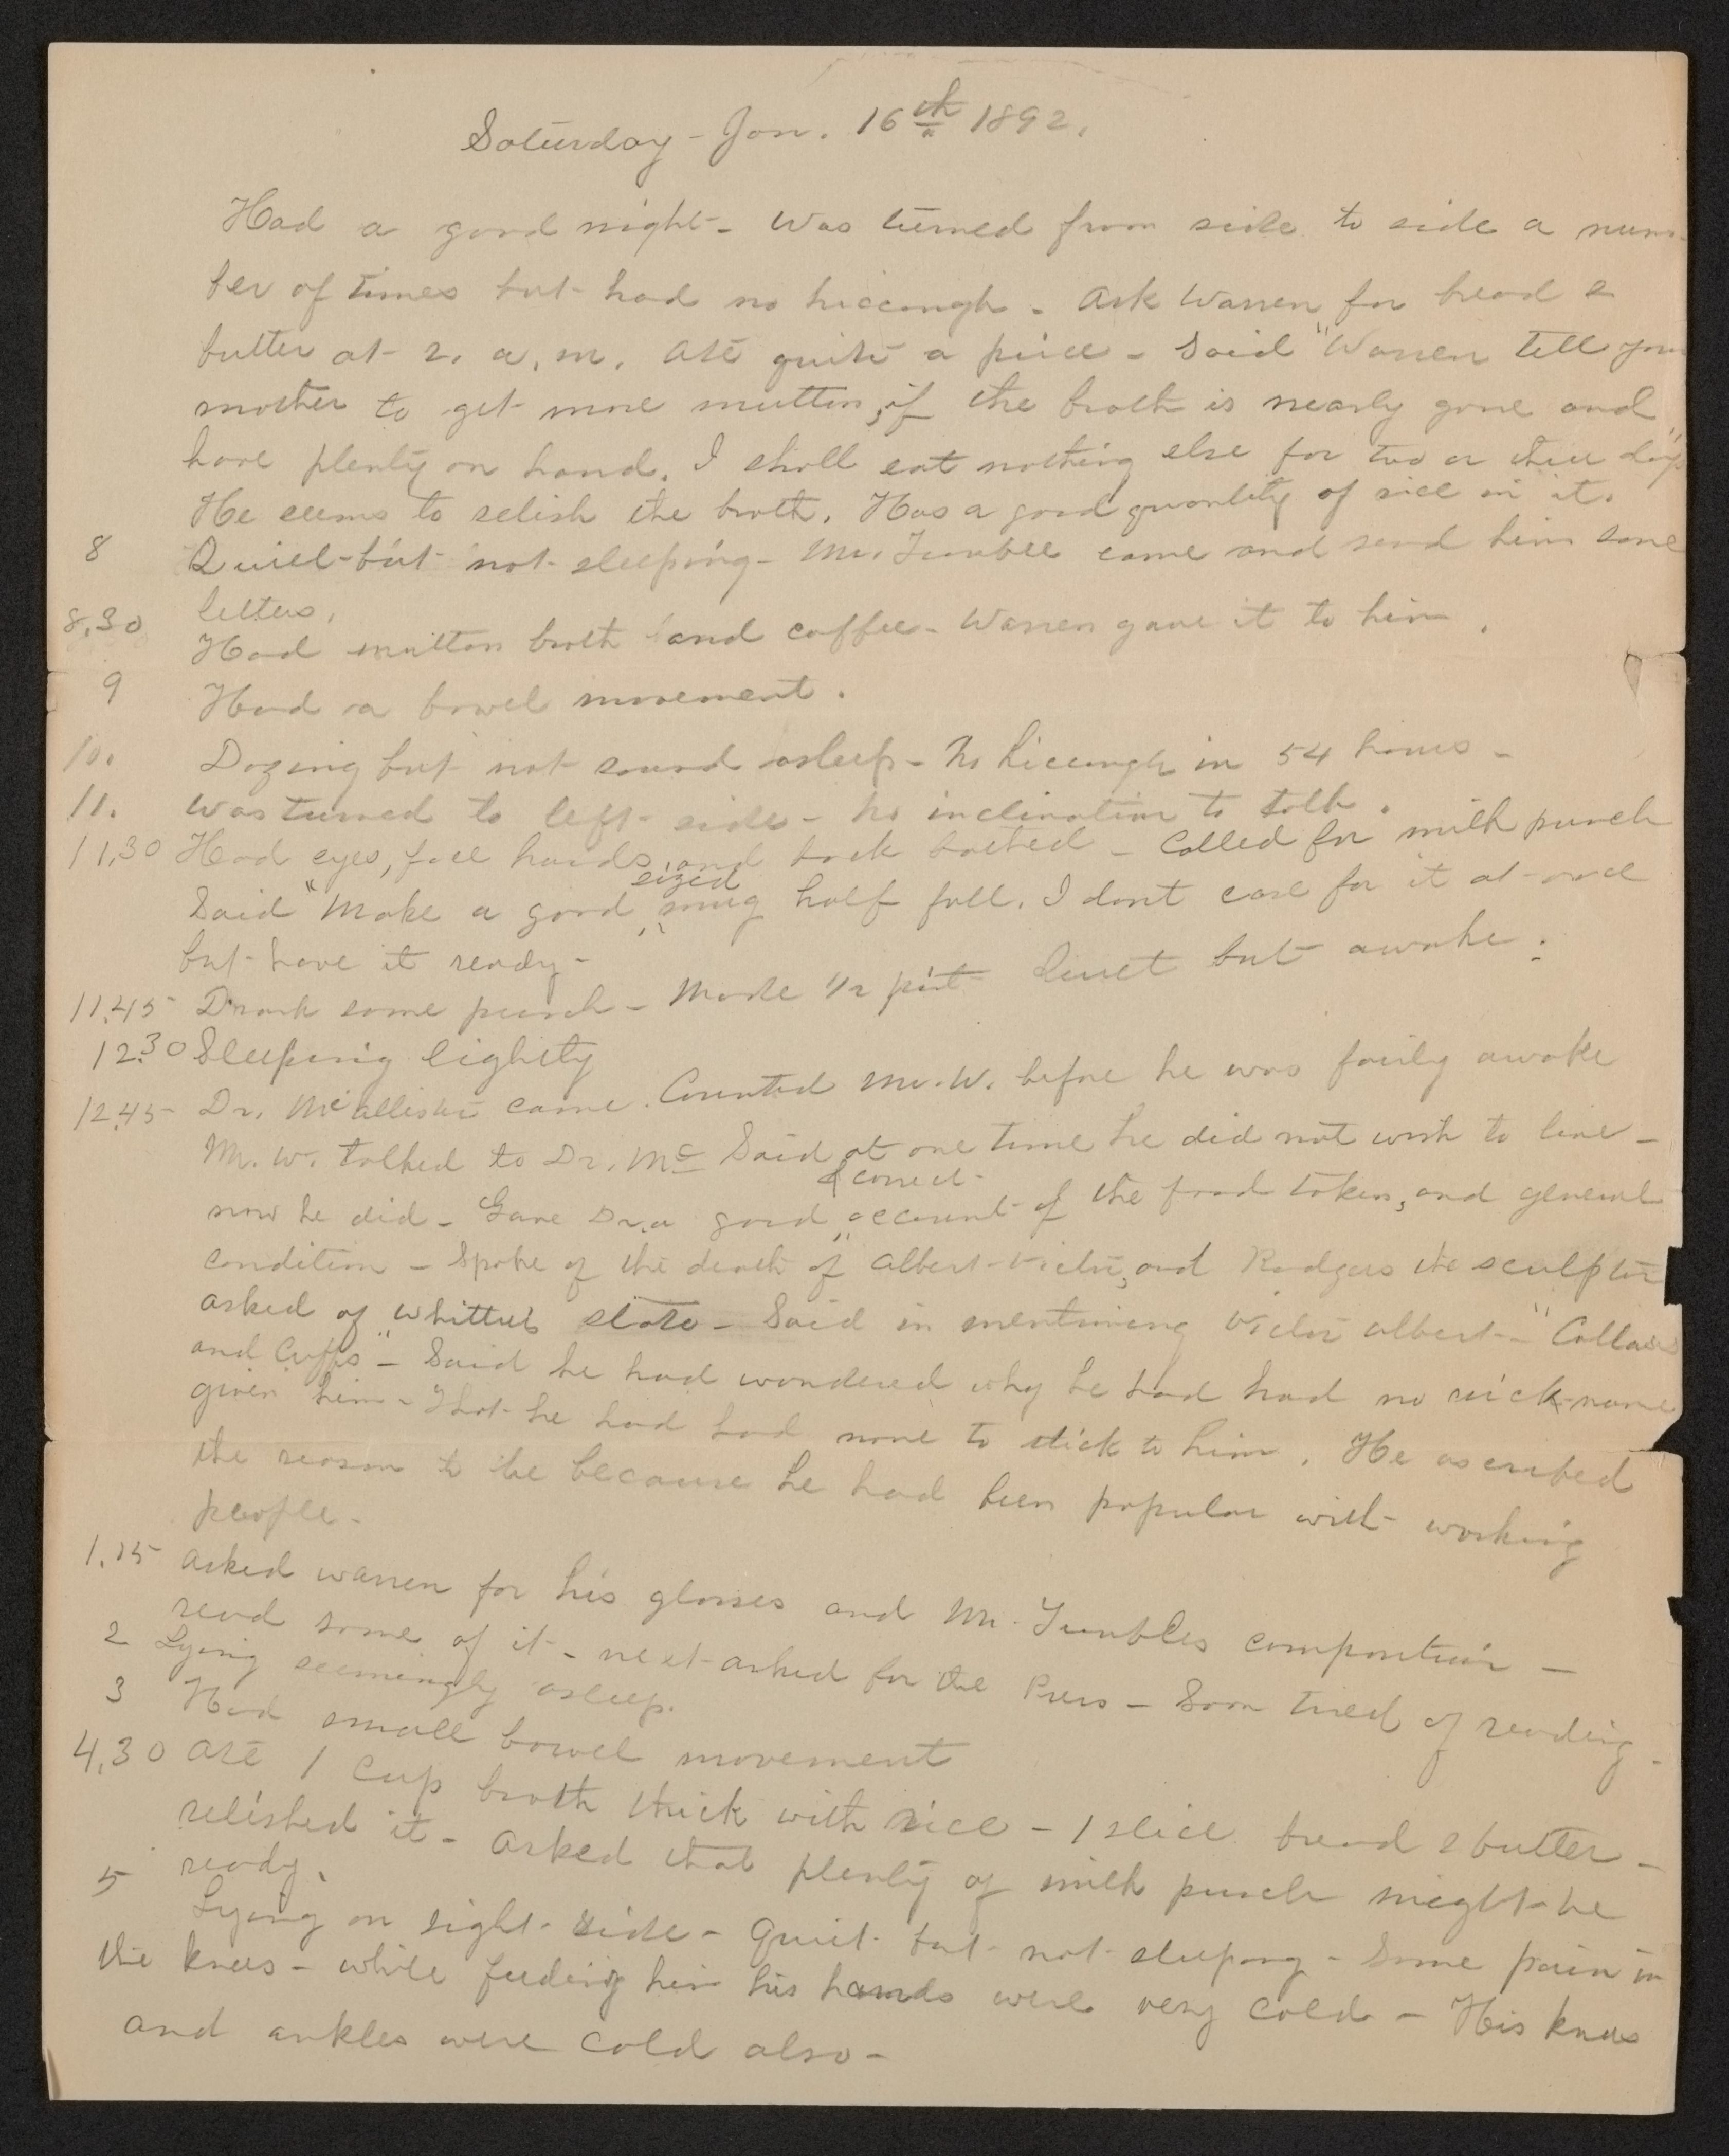 Saturday - Jan. 16th 1892.
Had a good night - Was turned from side to side a num-
ber of times but had no hiccough - Ask Warren for bread &
butter at 2. a.m. Ate quite a piece - Said "Warren tell your
mother to get more mutton, if the broth is nearly gone and
have plenty on hand. I shall eat nothing else for two or three days"
He seems to relish the broth. Has a good quantity of rice in it.
8 Quiet - but not sleeping - Mr. came and read him some
letters.
8.30 Had mutton broth and coffee - Warren gave it to him.
9 Had a bowel movement.
10. Dozing but not sound asleep - No hiccough in 54 hours -
11. Was turned to left side - no inclination to talk.
11.30 Had eyes, face hands, and back bathed - Called for milk punch
Said "Make a good sized mug half full. I dont care for it at once
but have it ready -
11.45 Drank some punch - Made 1/2 pint Quiet but awake.
12.30 Sleeping lightly
12.45 Dr. McAllister came. Counted Mr. W. before he was fairly awake
Mr. W. talked to Dr. Mc Said at one time he did not wish to live -
now he did - Gave Dr. a good & correct account of the food taken, and general
condition - Spoke of the death of Albert Victor, and Rodgers the sculptor
asked of Whittiers state - Said in mentioning Victor Albert - "Collars
and Cuffs" - Said he had wondered why he had had no nick-name
given him - That he had had none to stick to him. He ascribed
the reason to be because he had been popular with working
people -
1.15 Asked warren for his glasses and Mr. composition -
read some of it - next asked for the Press - Soon tired of reading -
2 Lying seemingly asleep.
3 Had small bowel movement
4.30 Ate 1 cup broth thick with rice - 1 slice bread & butter -
relished it - Asked that plenty of milk punch might be
ready.
5 Lying on right side - Quiet but not sleeping - Some pain in
the knees - while feeding him his hands were very cold - His knees
and ankles were cold also -